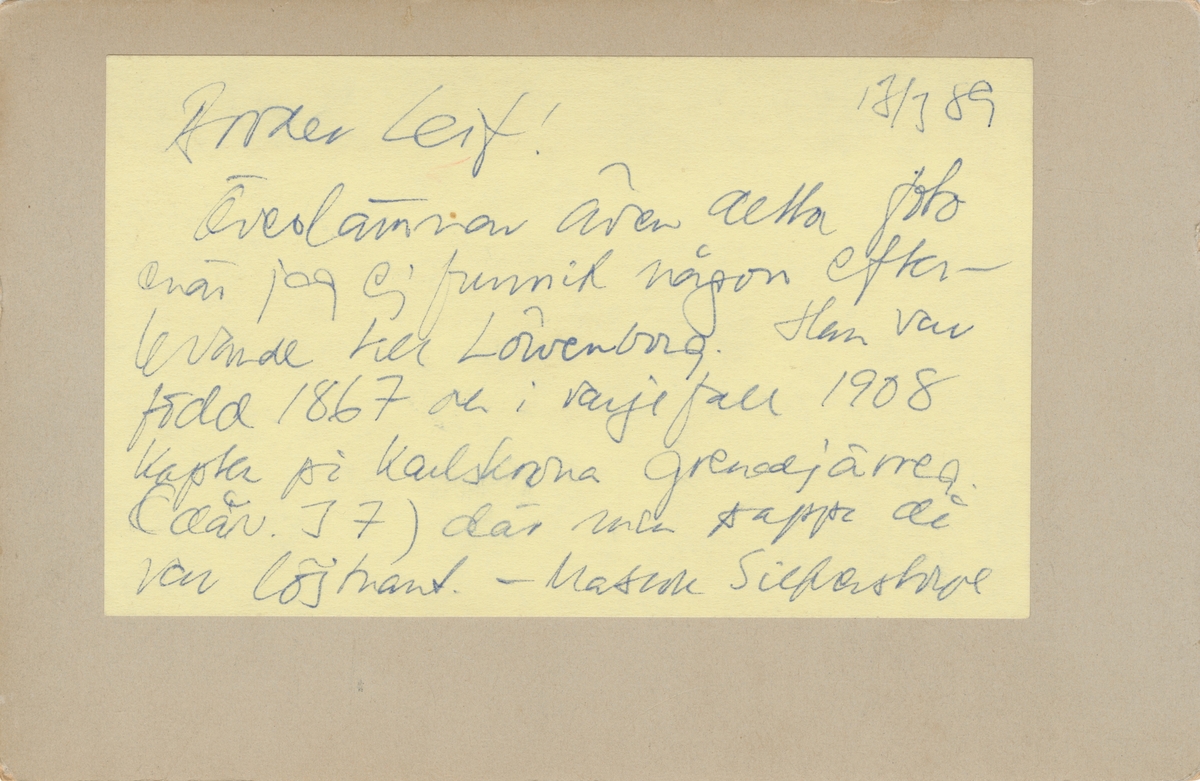 Broder Leif! 13/3 89
Överlämnar även detta foto
enär jag ej funnit någon efter-
levande till Löwenborg. Han var
född 1867 och i varje fall 1908
Kapten på Karlskrona grenadjärreg.
(dåv. I 7) där min pappa då
var löjtnant. – Silfverstolpe